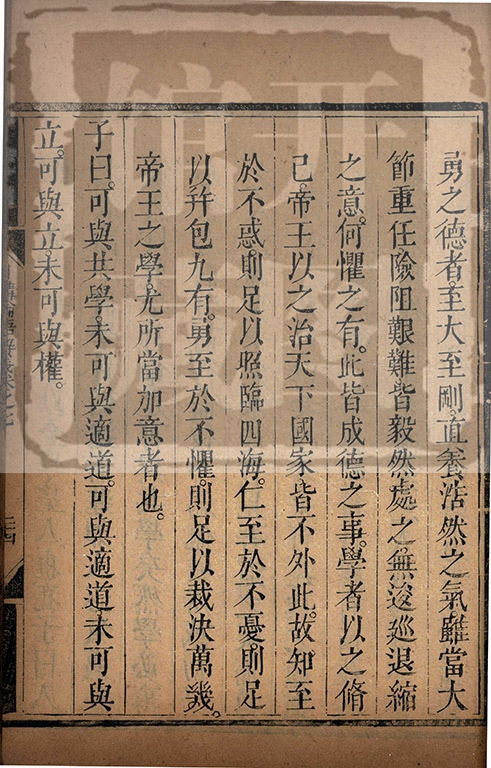 勇之德者。至大至剛。直養浩然之氣。雖當大
節重任險阻艱難皆毅然處之無逡巡退縮
之意。何懼之有。此皆成德之事。學者以之脩
己。帝王以之治天下國家皆不外此。故知至
於不惑。則足以照臨四海。仁至於不憂。則足
以幷包九有。勇至於不懼。則足以裁決萬幾。
帝王之學。尤所當加意者也。
子曰。可與共學。未可與適道。可與適道未可與
立。可與立。未可與權。